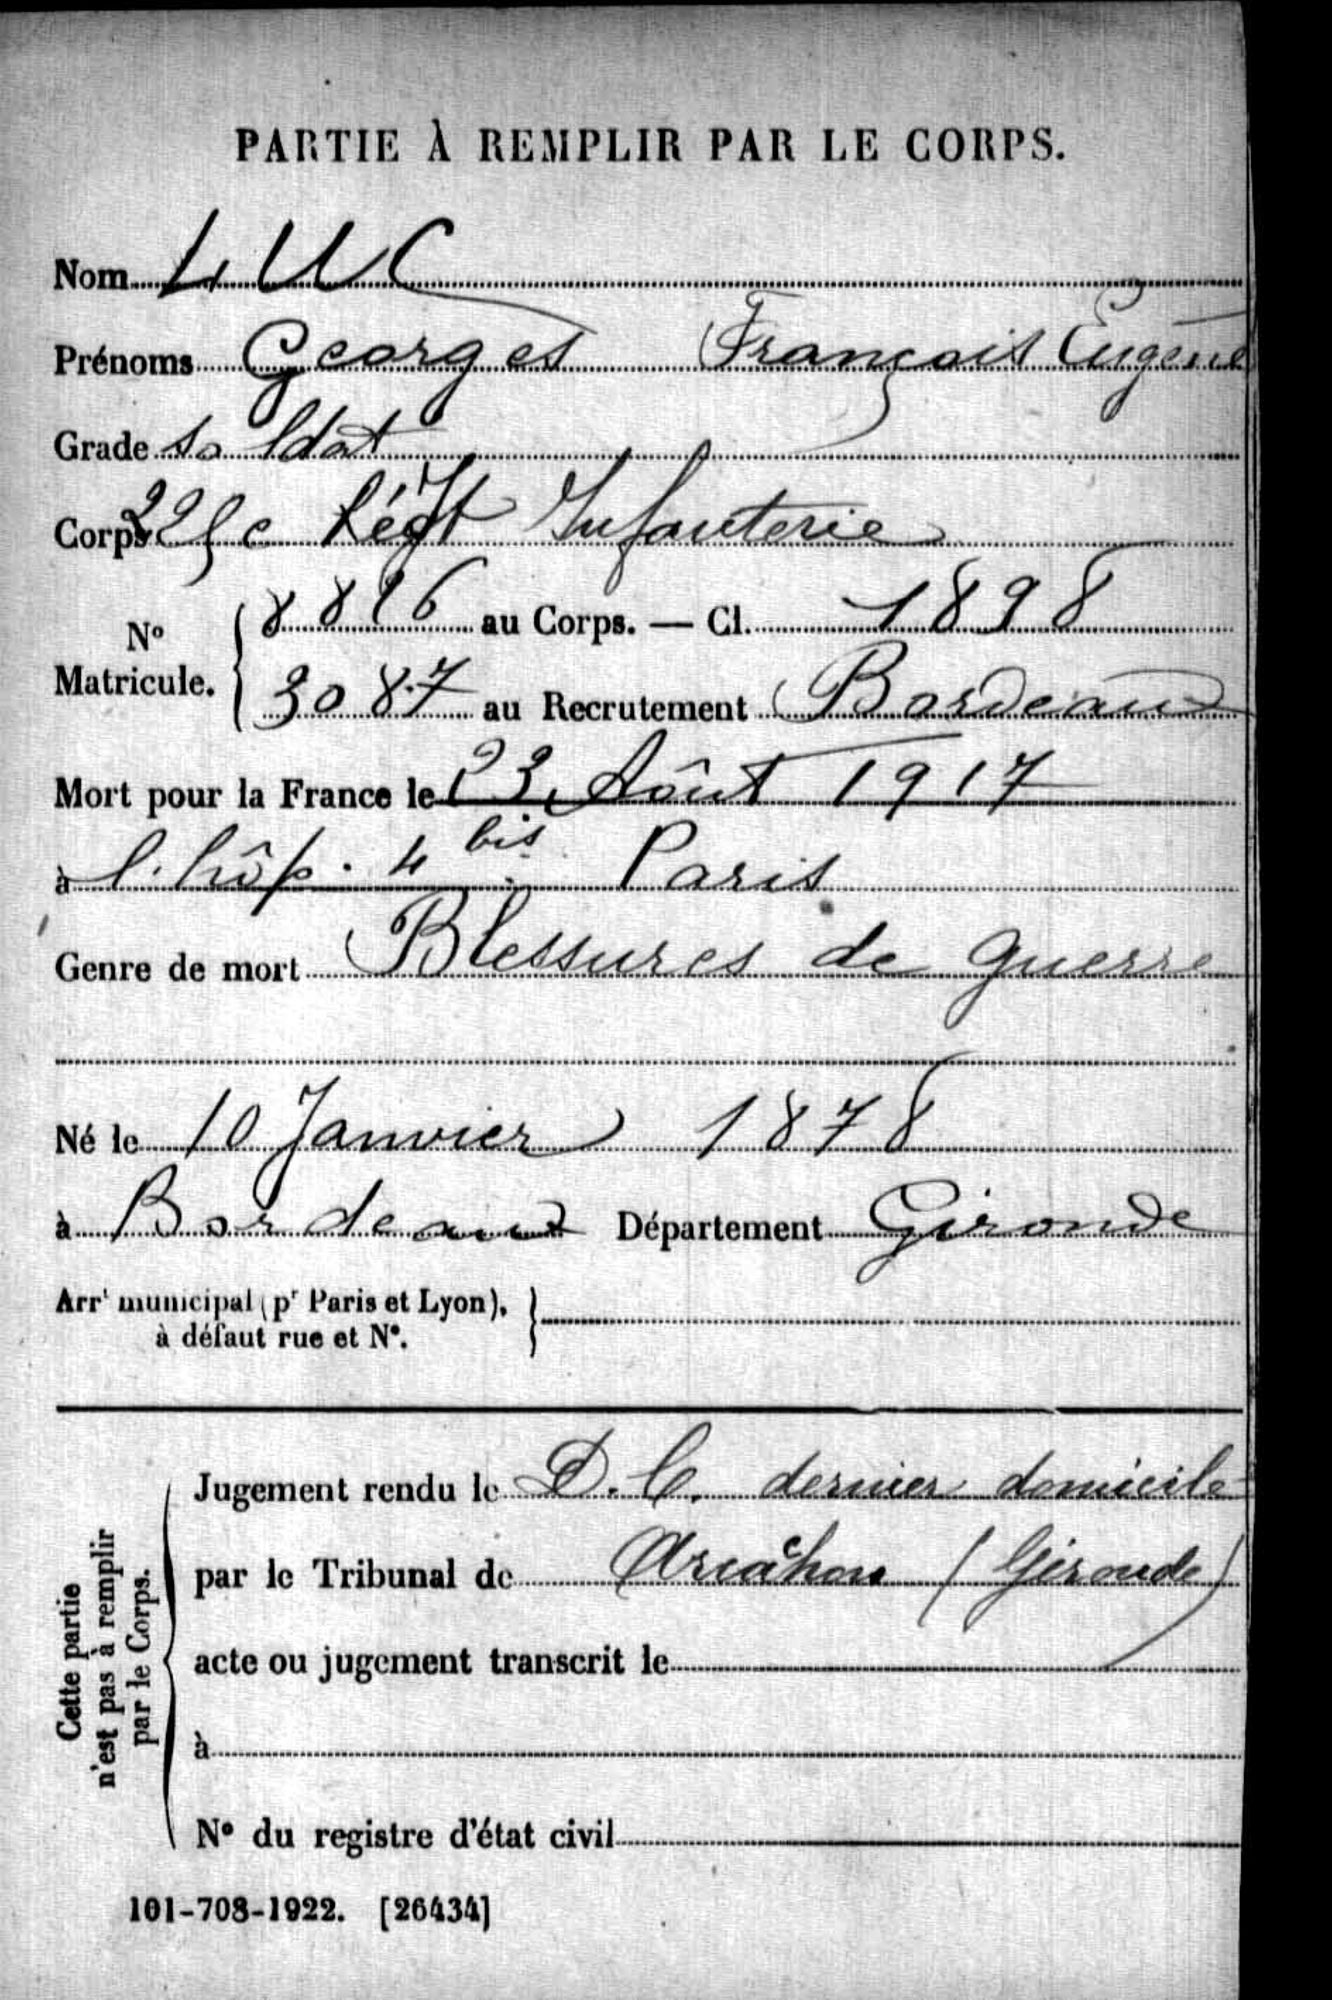 PARTIE À REMPLIR PAR LE CORPS.
Nom LUC
Prénoms Georges François Eugène
Grade soldat
Corps Régt Infanterie
No Matricule. 8816 au Corps. — Cl. 1898
3087 au Recrutement Bordeaux
Mort pour la France le 23 Aôut 1917
à l. hôp. 4 bis Paris
Genre de mort Blessures de guerre
Né le 10 Janvier 1878
à Bordeaux Département Gironde
Arrt municipal (pr Paris et Lyon),
à défaut rue et N°.
Cette partie
n'est pas à remplir
par le Corps.
Jugement rendu le D.C. dernier domicile
par le Tribunal de Arcachon (Gironde)
acte ou jugement transcrit le
à
N° du registre d'état civil
101-708-1922. [26434]